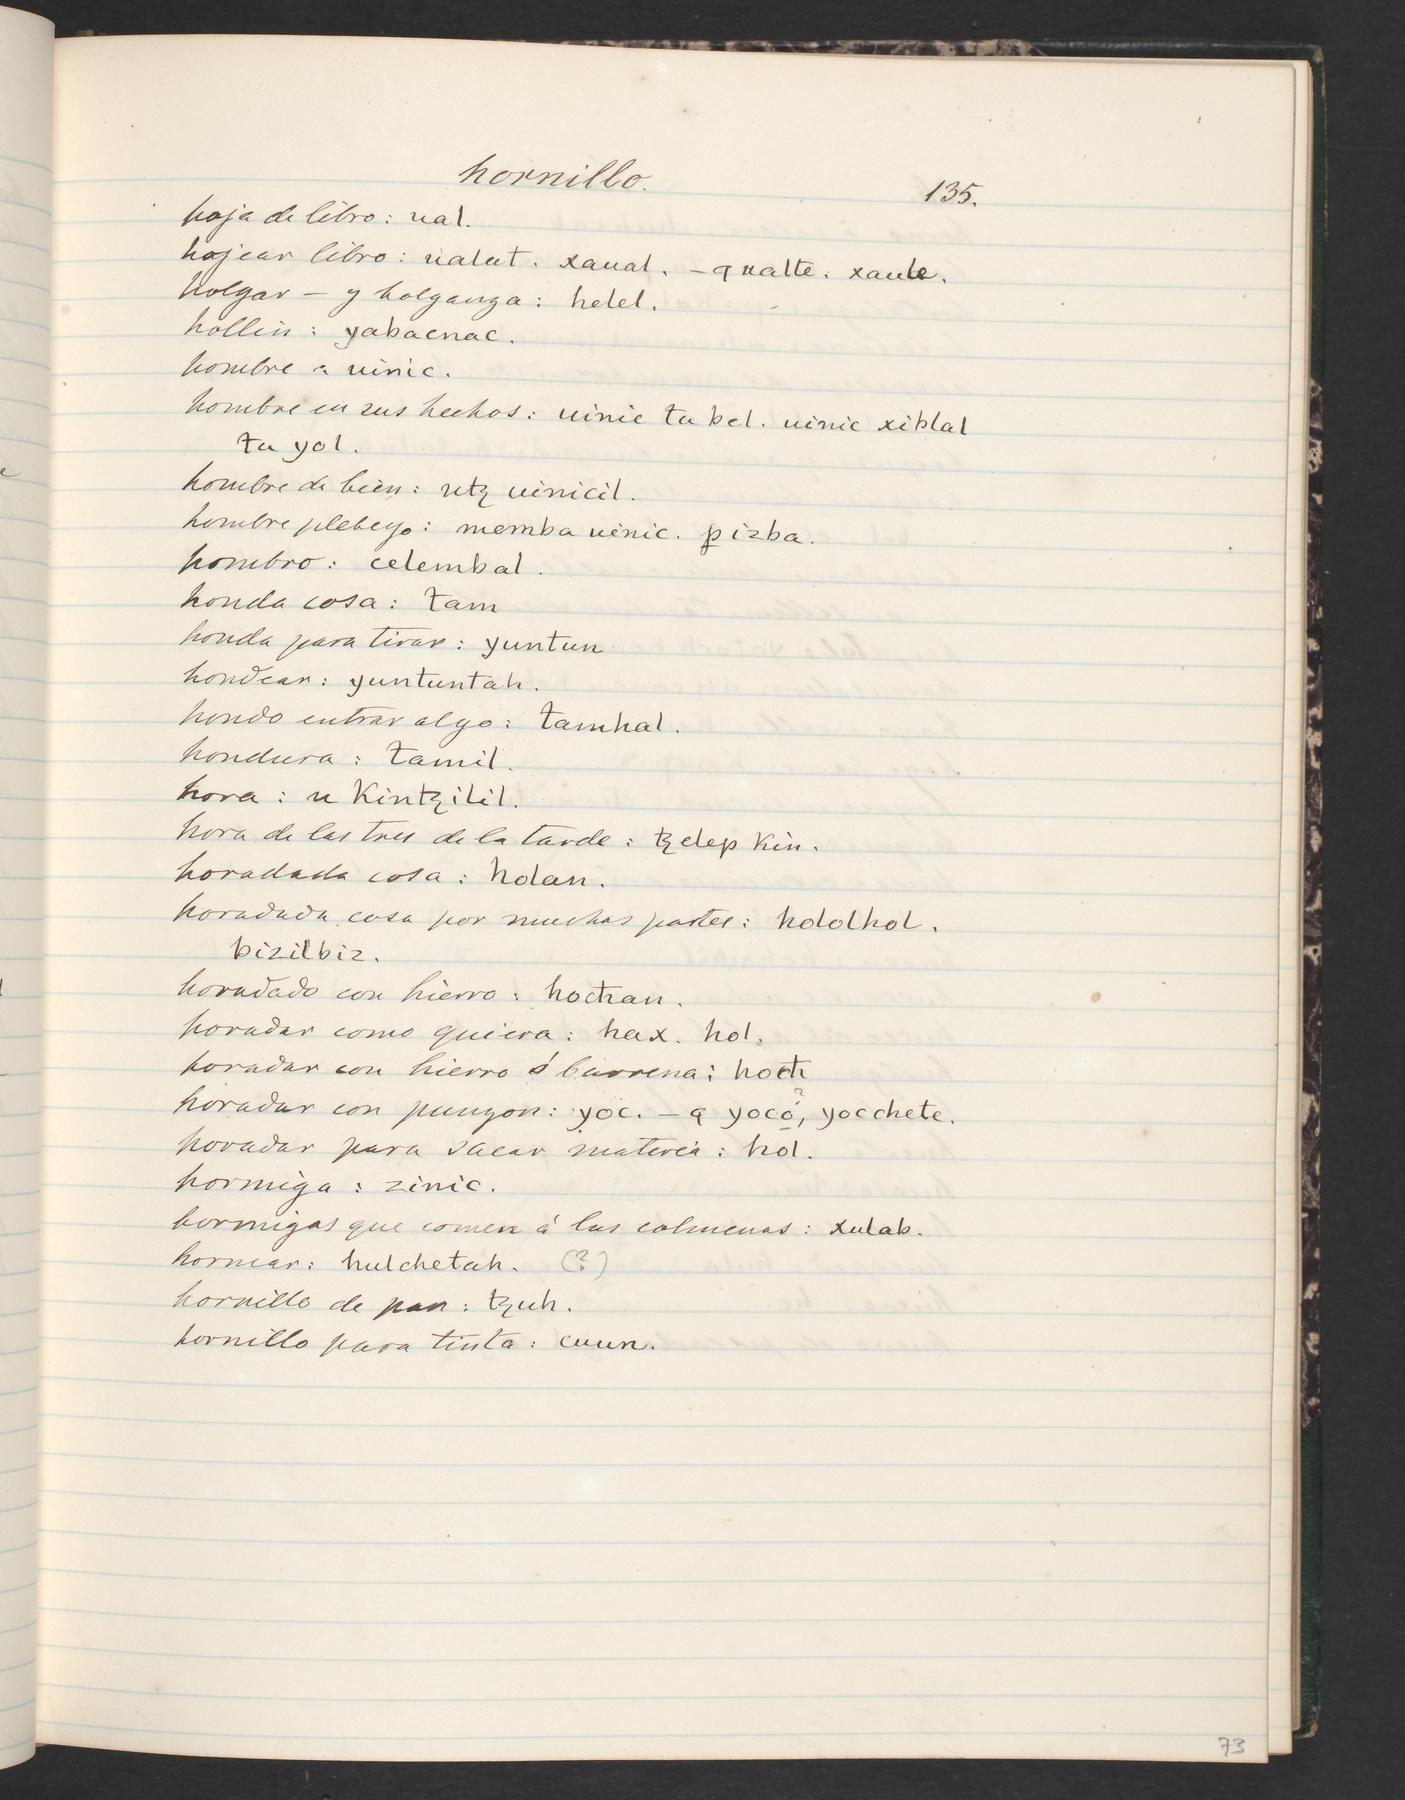 hornillo.
135.
hoja de libro: ual.
hojear libro: ualut. xaual. – q ualte. xaule.
holgar – y holganza: helel.
hollin: yabacnac.
hombre: uinic.
hombre en sus hechos: uinic ta bel. uinic xiblal
ta yol.
hombre de bien: utꜩ uinicil.
hombre plebeyo: memba uinic. ꝑizba.
hombro: celembal.
honda cosa: tam
honda para tirar: yuntun
hondear: yuntuntah.
hondo entrar algo: tamhal.
hondura: tamil.
hora: u Kintꜩilil.
hora de las tres de la tarde: tꜩelep Kin.
horadada cosa: holan.
horadada cosa por muchas partes: hololhol.
bizilbiz.
horadado con hierro: hocħan.
horadar como quiera: hax. hol.
horadar con hierro ó barrena: hocħ
horadar con punzon: yoc. – q yocó?, yocchete.
horadar para sacar materia: hol.
hormiga: zinic.
hormigas que comen á las colmenas: xulab.
hornear: hulchetah. (?)
hornillo de pan: tꜩuh.
hornillo para tinta: cuun.
73